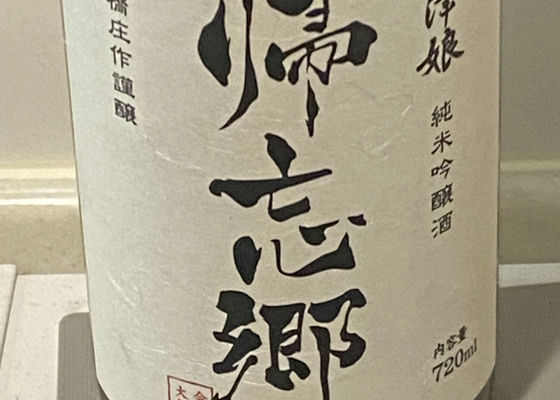 津娘
純米吟醸酒
内容量
720ml
帰忘郷
橋庄作謹醸